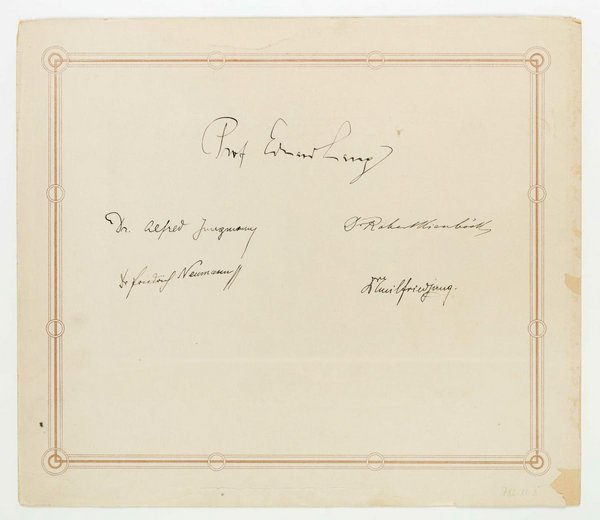 Prof Eduard Lang
Dr. Alfred Jungmann
Dr Robert Kienböck
Dr Friedrich Neumann
Dr Emil